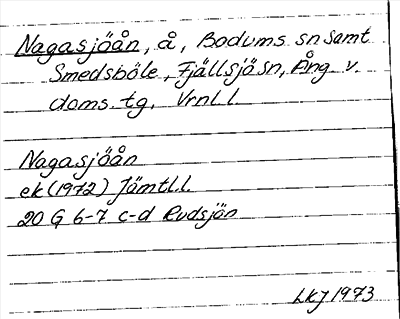 Nagasjöån, å, Bodums sn samt
Smedsböle, Fjällsjö sn, Ång. v.
doms. tg, Vrnl. l.
Nagasjöån
ek (1972) Jämtl.l.
20 G 6-7 c-d Rudsjön
LKJ 1973